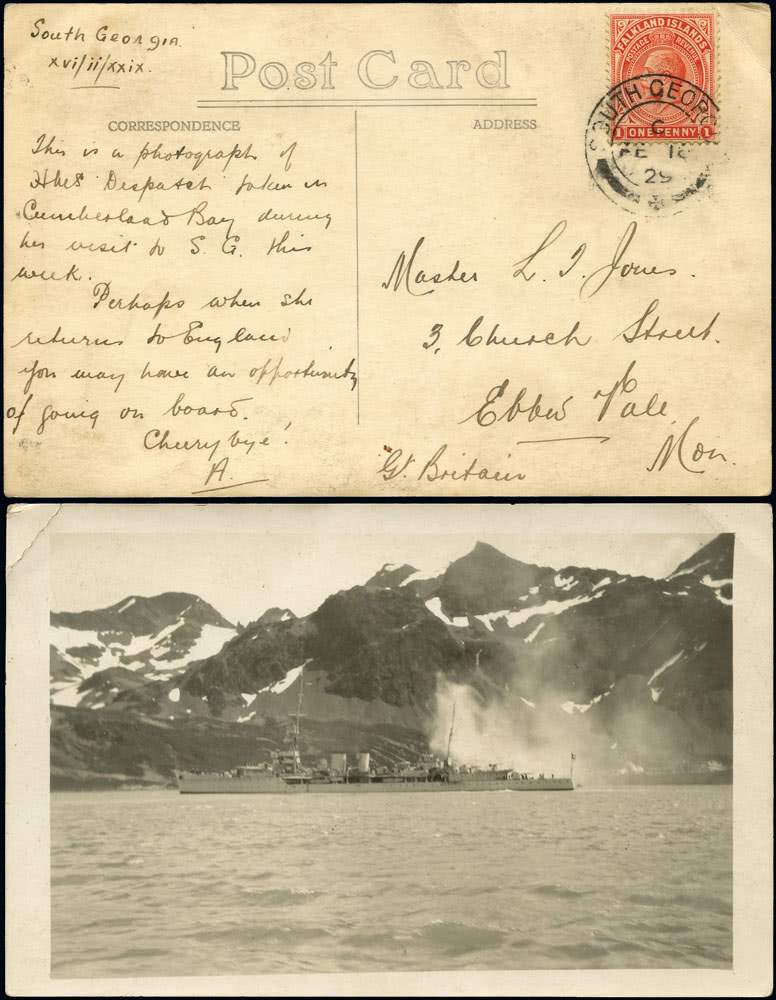 South Georgia.
xvi/ii/xxix.
Post Card
CORRESPONDENCE
ADDRESS
FALKLAND ISLANDS
POSTAGE REVENUE
1 ONE PENNY 1
SOUTH GEOR
C
FE 18
29
This is a photograph of
HMS Despatch taken in
Cumberland Bay during
her visit to S. G. this
week.
Perhaps when she
returns to England
you may have an opportunity
of going on board.
Cheery bye!
A.
Master L. I. Jones.
3, Church Street.
Ebbw Vale
Mon.
Gt. Britain